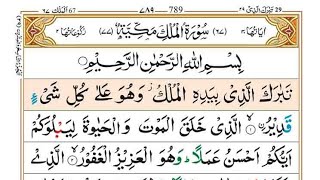 ٦٧ الملك ٦٧ ٧٨٩ 789 تبٰرك الذی ٢٩
اٰیاتها ٣٠ (٦٧) سُوْرَةُ الْمُلْكِ مَكِّیَّةٌ (٧٧) رکوعاتها ٢
بِسْمِ اللّٰهِ الرَّحْمٰنِ الرَّحِیْمِ
تَبٰرَكَ الَّذِیْ بِیَدِهِ الْمُلْكُ ؗ وَهُوَ عَلٰی كُلِّ شَیْءٍ
قَدِیْرُ ۨ ۙ الَّذِیْ خَلَقَ الْمَوْتَ وَالْحَیٰوةَ لِیَبْلُوَكُمْ
اَیُّكُمْ اَحْسَنُ عَمَلًا ؕ وَهُوَ الْعَزِیْزُ الْغَفُوْرُ ۙ الَّذِیْ